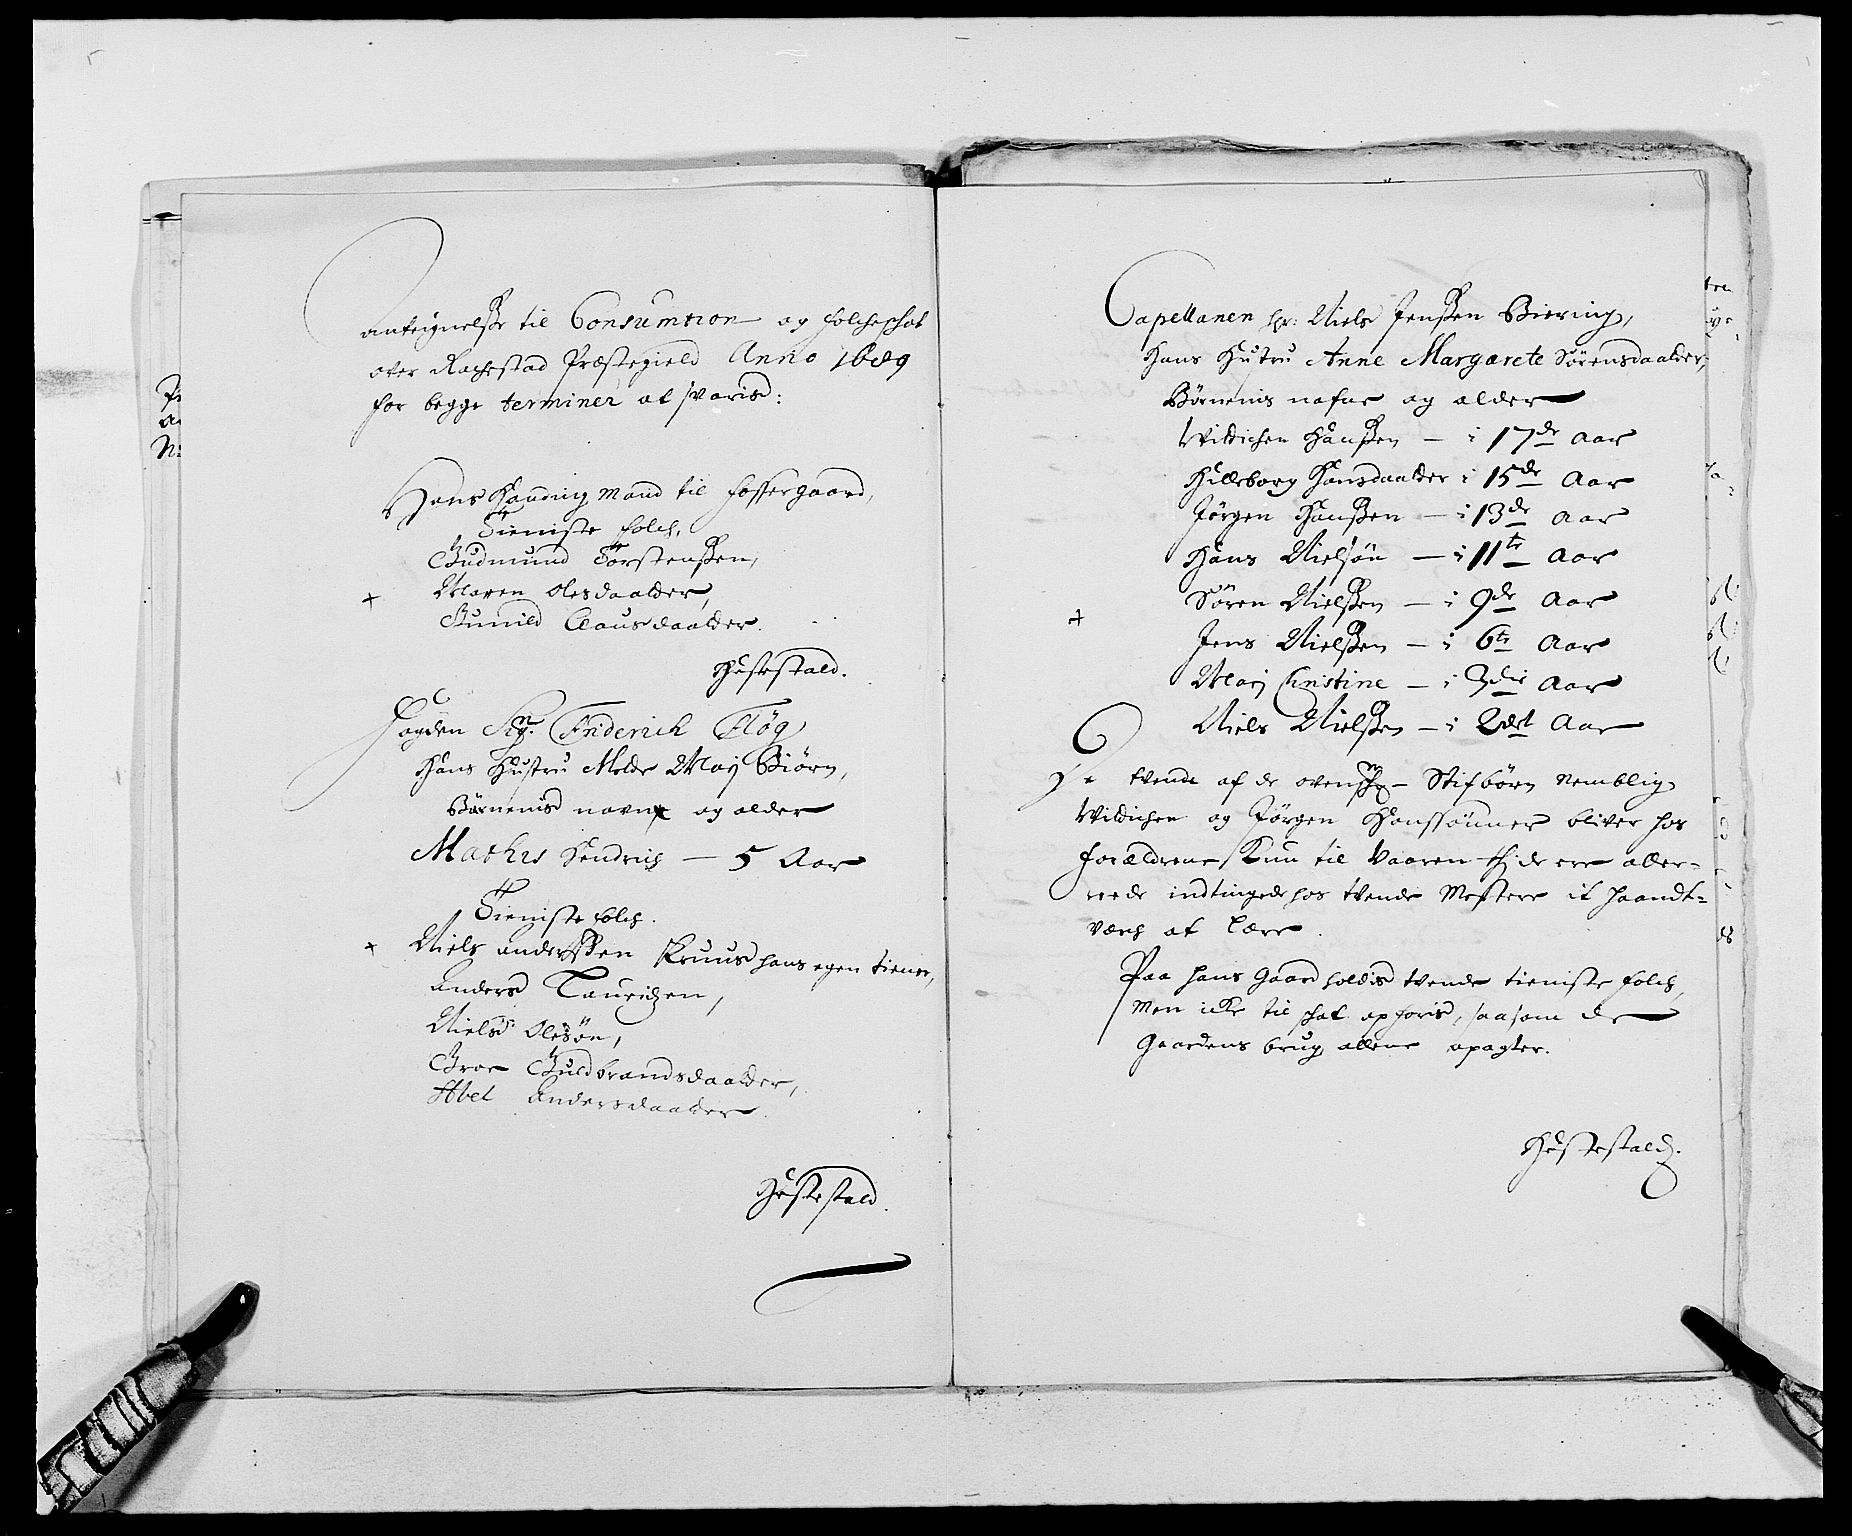 Anteignelse til Consumtion og folcheschat
over Rachestad Præstegield Anno 1689
for begge terminer at svaris:
Hans Handnig mand til fossergaard,
Tieniste folch,
Gudmund Torstenssen,
+ Maren Olesdaatder,
Gunild Clausdaatder.
Hustestald.
Fogden Sigr. Friderich Fløg
Hans Hustru Melde Marj Biørn,
Børnenis navn og alder
Mathis Hendrich — 5 Aar
Tieniste folch.
+ Niels anderssen Kruus hans egen tiener,
Anders Lauridzen,
Niels Olesøn,
Groe Guldbrandsdaatder,
Abel Andersdaatder.
Hustestald.
Capellanen hr: Niels Jenssen Biering,
Hans Hustru Anne Margarete Sørensdaatder,
Børnenis nafne og alder
Wildichen Hanssen — i 17de Aar
Hilleborg Hansdaatder i 15de Aar
Jørgen Hanssen — i 13de Aar
Hans Nielsøn — i 11te Aar
+ Søren Nielssen — i 9de Aar
Jens Nielssen — i 6te Aar
Marj Christine — i 3die Aar
Niels Nielssen — i 2det Aar
De tvende af de ovenschr— Stifbørn Nemblig
Wildichen og Jørgen Hanssønner bliver hos
forældrene Kun til Vaaren thj de ere aller=
rede indtingede hos tvende Mestere it haandt=
værch at Lære.
Paa hans Gaard holdis tvende tieniste folch,
Men icke til schat opføris, saasom de
Gaardens brug allene opagter.
Hustestald.